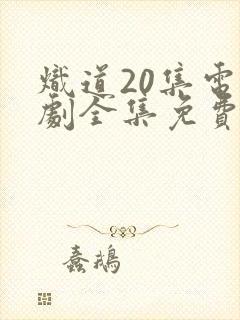 熾道20集電
劇全集免費
蠢鵝